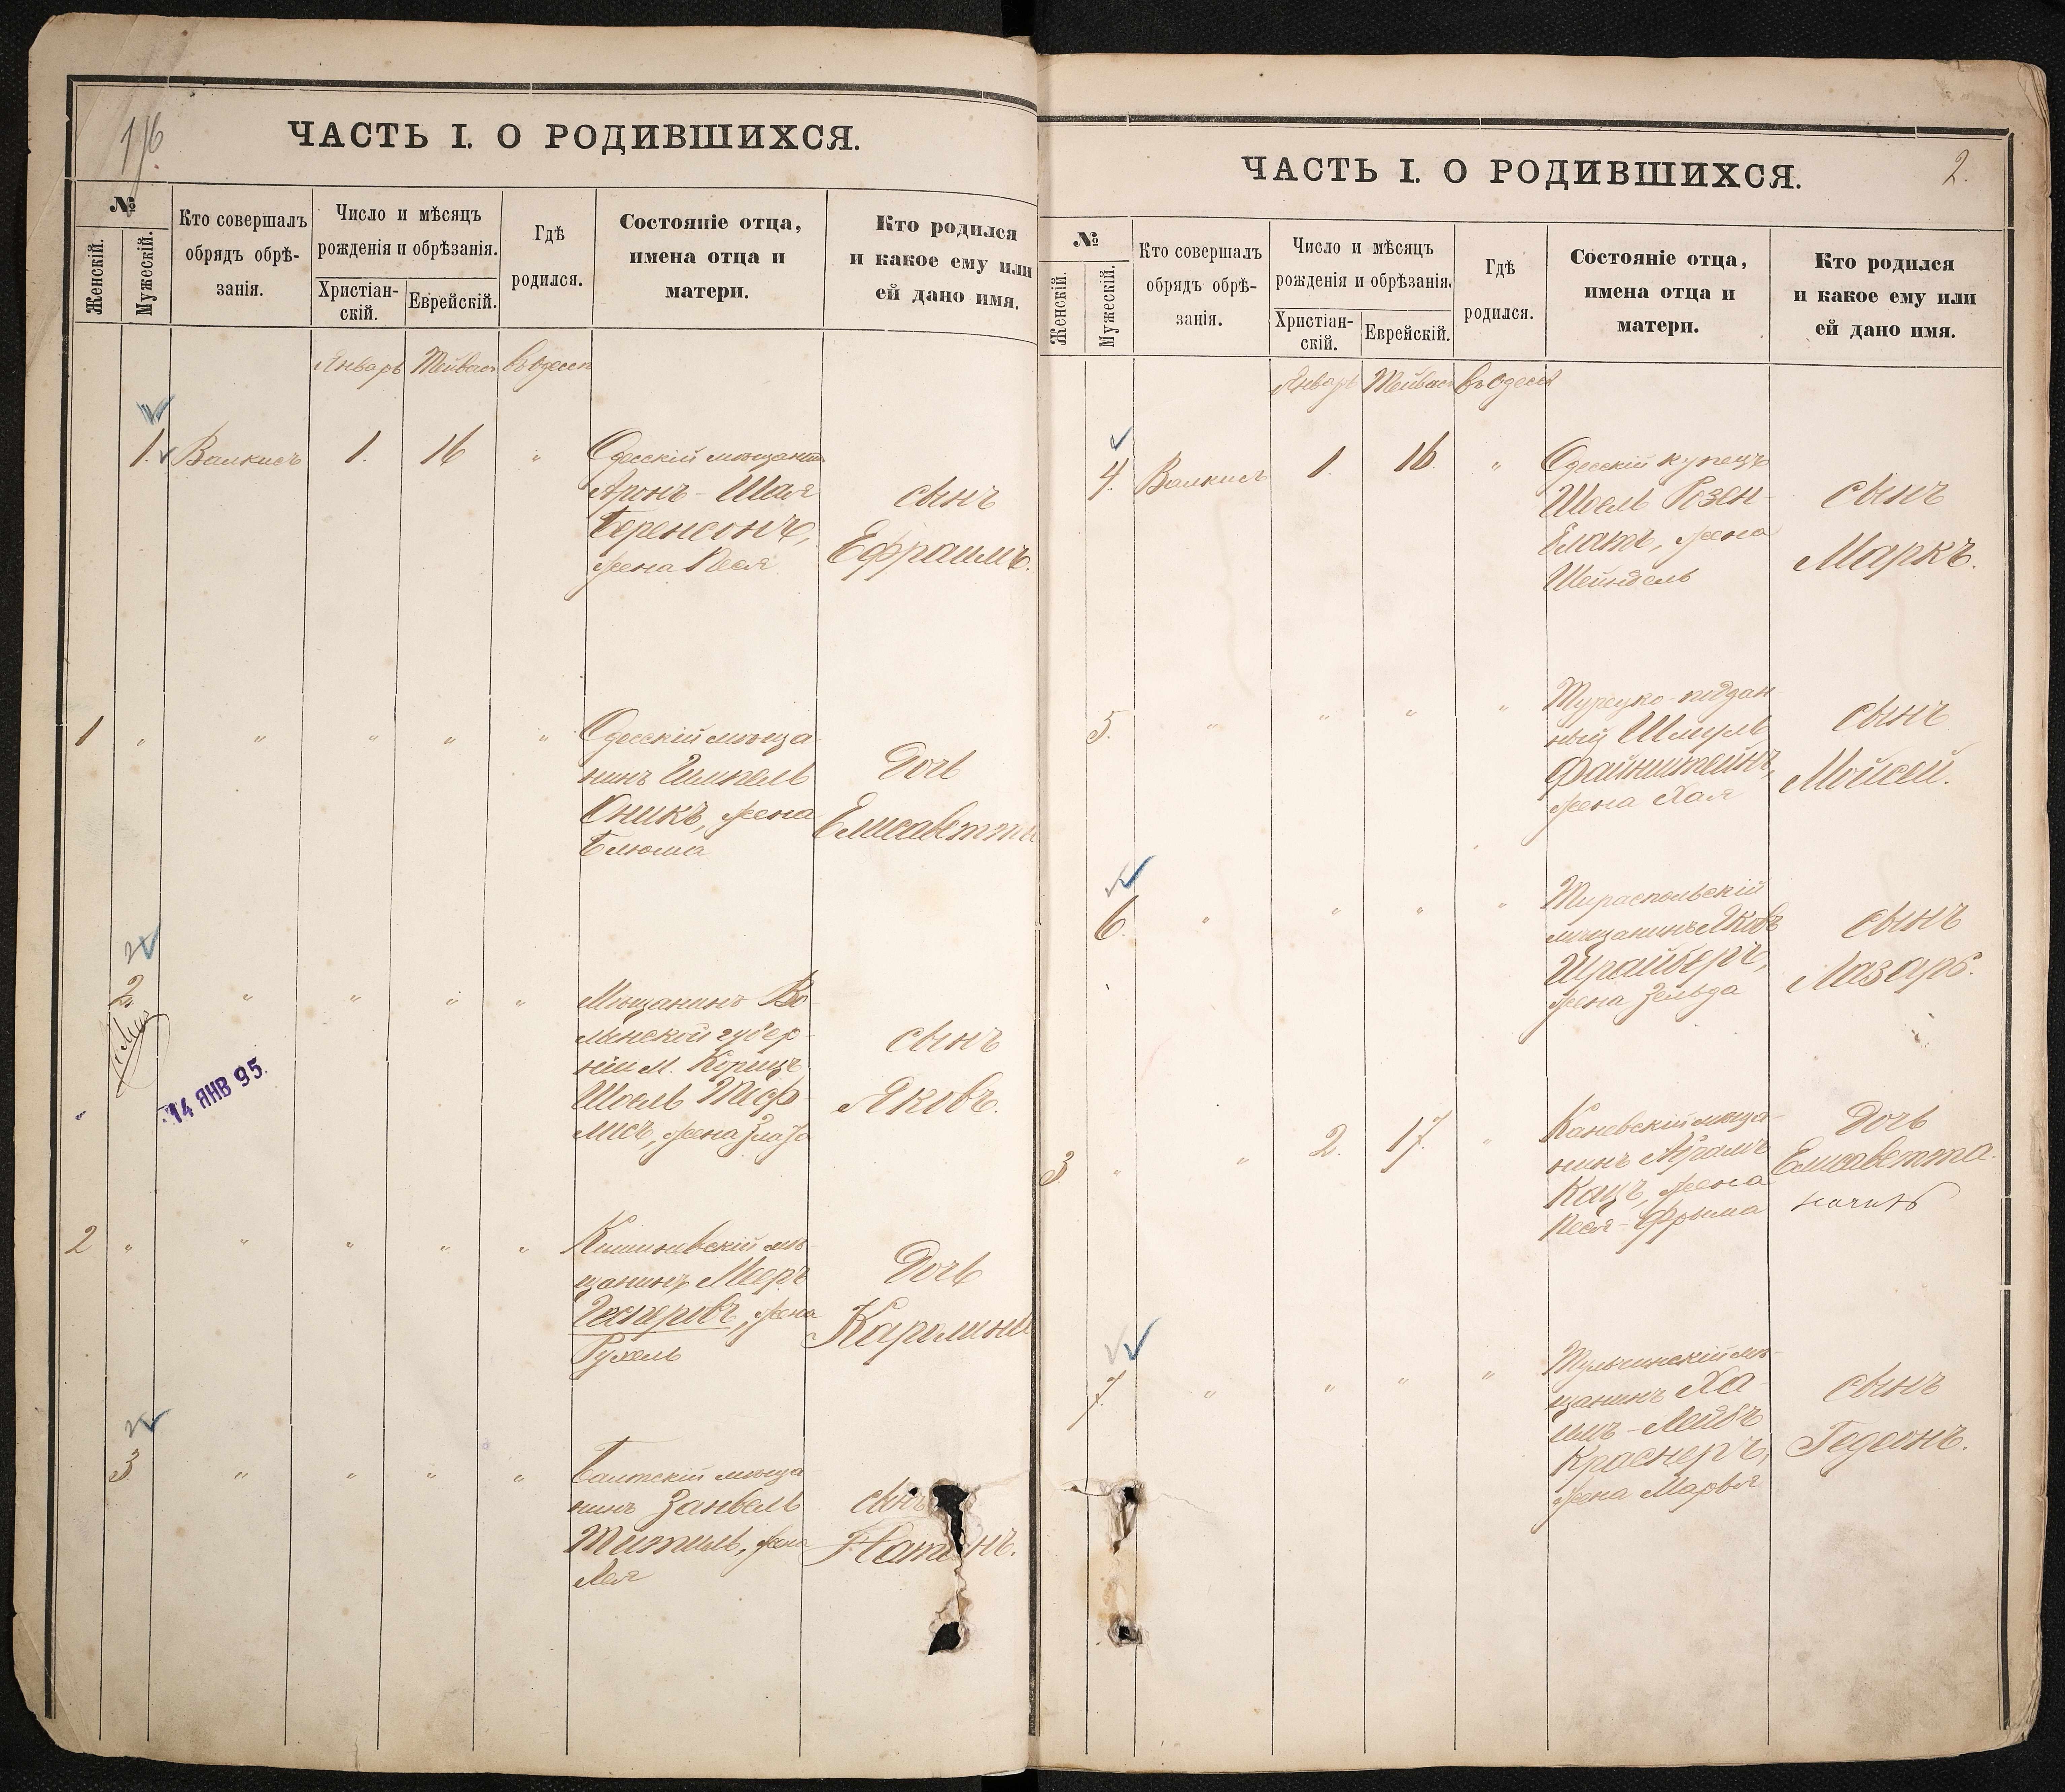 1/6
ЧАСТЬ I. О РОДИВШИХСЯ.
№
Женскій.
Мужескій.
Кто совершалъ
обрядъ обрѣ-
занія.
Число и мѣсяцъ
рожденія и обрѣзанія.
Христіан-
скій.
Еврейскій.
Гдѣ
родился.
Состояніе отца,
имена отца и
матери.
Кто родился
и какое ему или
ей дано имя.
Январь Тейвас въ Одесс
1. Валкисъ 1. 16 "
Одесскій мѣщанинъ
Аронъ-Шая
Беренсонъ,
жена Песя
сынъ
Ефраимъ.
1 " " " " "
Одесскій мѣща-
нинъ Гимпель
Оникъ, жена
Блюма
дочь
Елисаветта
2. " " " "
Мѣщанинъ Во-
лынской губер-
ніи м. Корицъ
Шоель
жена Злата
сынъ
Яковъ.
14 ЯНВ 95.
2 " " " " "
Кишиневскій мѣ-
щанинъ Мееръ
жена
Рухель
дочь
Каролина
3 " " " "
Балтскій мѣща-
нинъ Занвель
Тители, жена
Лея
сынъ
Натанъ.
ЧАСТЬ I. О РОДИВШИХСЯ.
2.
№
Женскій.
Мужескій.
Кто совершалъ
обрядъ обрѣ-
занія.
Число и мѣсяцъ
рожденія и обрѣзанія.
Христіан-
скій.
Еврейскій.
Гдѣ
родился.
Состояніе отца,
имена отца и
матери.
Кто родился
и какое ему или
ей дано имя.
Январь Тейвас въ Одесс
4. Валкисъ 1. 16. "
Одесскій купецъ
Шоель Розен-
блатъ, жена
Шейндель
сынъ
Маркъ.
5. " " " "
Турецко-поддан-
ный Шмуль
Файнштейнъ,
жена Хая
сынъ
Мойсей.
6. " " " "
Тираспольскій
мѣщанинъ Яковъ
Шрайберъ,
жена Зельда
сынъ
Лазарь.
3 " " 2. 17. "
Каневскій мѣща-
нинъ Абрамъ
Кацъ, жена
Песя-Фрыма
дочь
Елисаветта.
7. " " " "
Тульчинскій мѣ-
щанинъ Ха-
имъ-Лейбъ
Краснеръ,
жена Марья
сынъ
Гедеонъ.